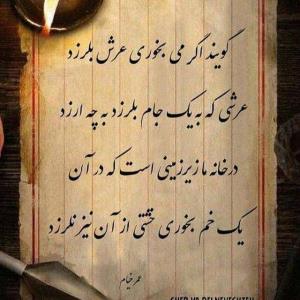 گویند اگر می بخوری عرش بلرزد
عرشی که به یک جام بلرزد به چه ارزد
در خانه ما زیرزمینی است که در آن
یک خم بخوری خشتی از آن نیز نلرزد
عمر خیام
SHER VA DELNEVESHTEH